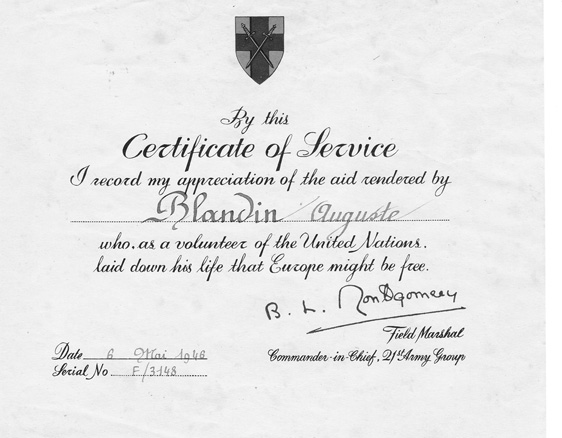 By this
Certificate of Service
I record my appreciation of the aid rendered by
Blandin Auguste
who, as a volunteer of the United Nations,
laid down his life that Europe might be free.
B. L. Montgomery
Field Marshal
Commander-in-Chief, 21st Army Group
Date 6 Mai 1946
Serial No F/3148